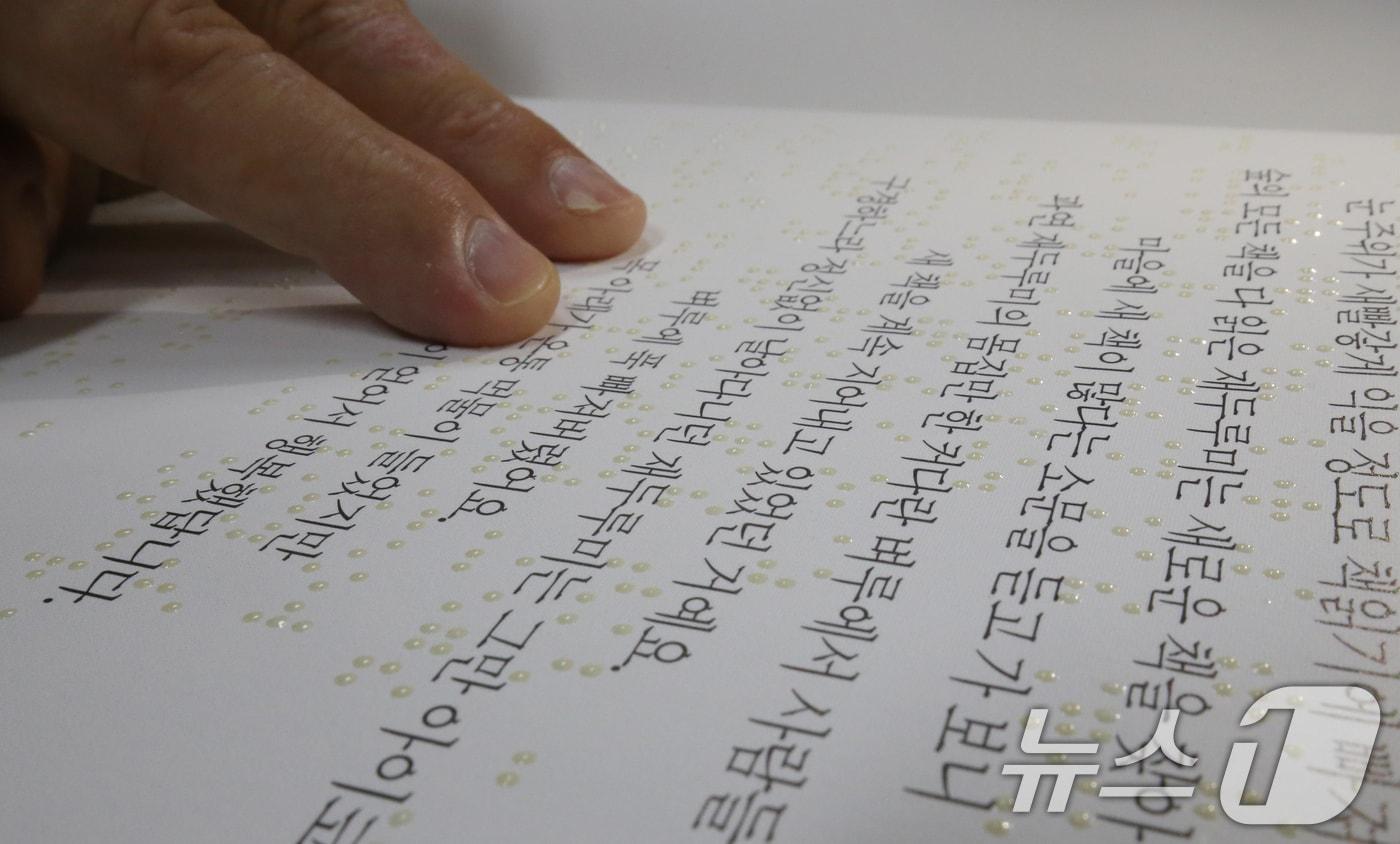 눈 주위가 새빨갛게 익을 정도로 책읽기에 빠져
숲의 모든 책을 다 읽은 재두루미는 새로운 책을 찾아
마을에 새 책이 많다는 소문을 듣고 가 보니
과연 재두루미의 몸집만 한 커다란 벼루에서 사람들
새 책을 계속 지어내고 있었던 거예요.
구경하느라 정신없이 날아다니던 재두루미는 그만 아이코
벼루에 푹 빠져버렸어요.
목 아래가 온통 먹물이 들었지만
얻어서 행복했답니다.
뉴스1